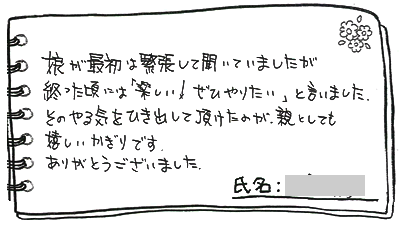 娘が最初は緊張して聞いていましたが
終った頃には「楽しい！ぜひやりたい」と言いました.
そのやる気をひき出して頂けたのが、親としても
嬉しいかぎりです.
ありがとうございました.
氏名：